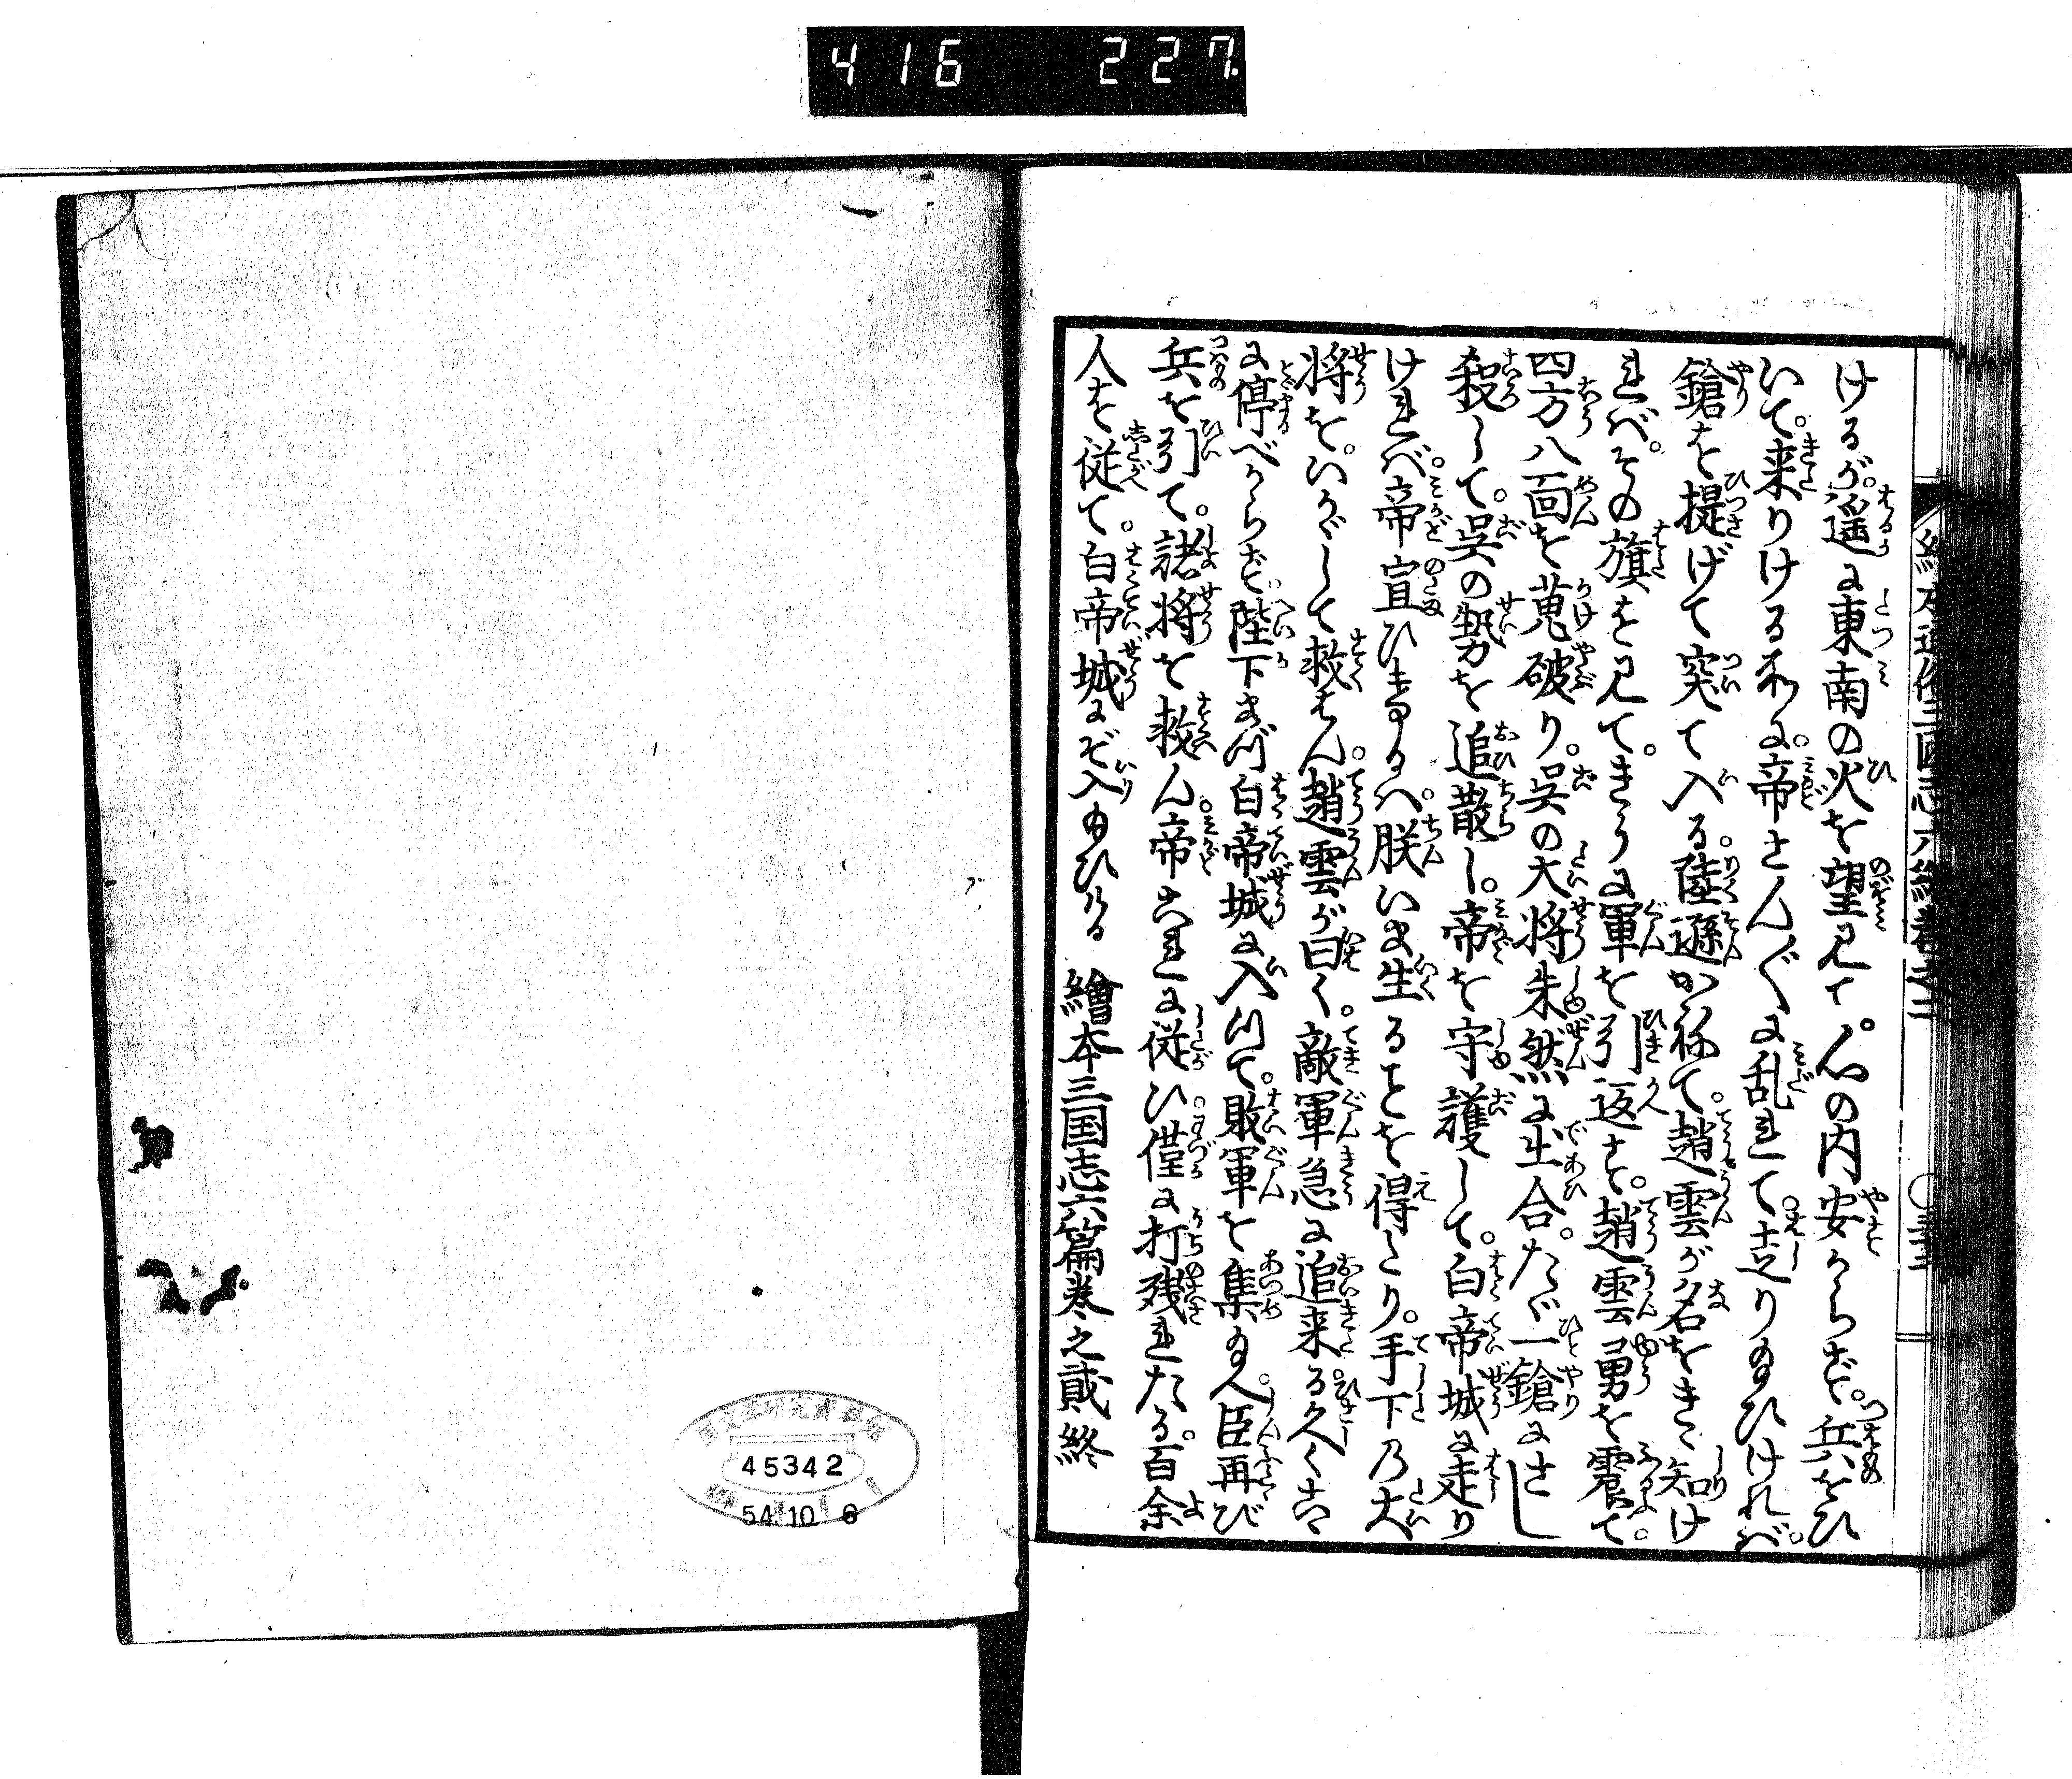 416 227
ける が。遥に東南の火を望見て。心の内安からず。兵をひ
いて。来りける所に。帝さんぐに乱れて。走り給ひければ。
鎗を提げて突て入る。陸遜かねて。趙雲が名をきゝ知け
れば。その旗を見て。きうに軍を引返す。趙雲勇を震て。
四方八面を蒐破り。呉の大将朱然に出合。たゞ一鎗にさし
殺して。呉の勢を追散し。帝を守護して。白帝城に走り
ければ。帝宣ひけるハ。朕いま生ることを得たり。手下乃大
将を。いかゞして救はん。趙雲が曰く。敵軍急に追来る。久くこゝ
に停べからず。陛下まづ白帝城に入れて。敗軍を集給へ。臣再び
兵を引て。諸将を救ん。帝これに従ひ。僅に打残れたる。百余
人を従て。白帝城にぞ入給ひける
繪本三国志六篇巻之貮終
45342
54.10.6